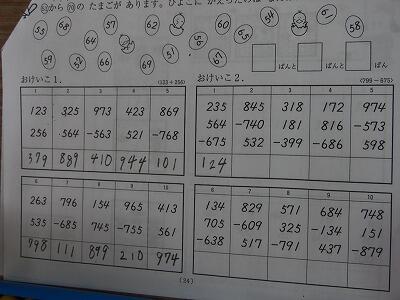 51から70の たまごが あります。ひよこに
55 68 57 62 60 54 61 58
64 56
59 52 66 69 51 67
ばんと ばんと ばん
おけいこ1. (123+256)
1 2 3 4 5
123 325 973 423 869
256 564 -563 521 -768
379 889 410 944 101
6 7 8 9 10
263 796 154 965 413
535 -685 745 -755 561
798 111 899 210 974
おけいこ2. (799-675)
1 2 3 4 5
235 845 318 172 974
564 -740 181 816 -573
-675 532 -399 -686 598
124
6 7 8 9 10
134 829 571 684 748
705 -609 325 -134 151
-638 517 -791 437 -879
(24)